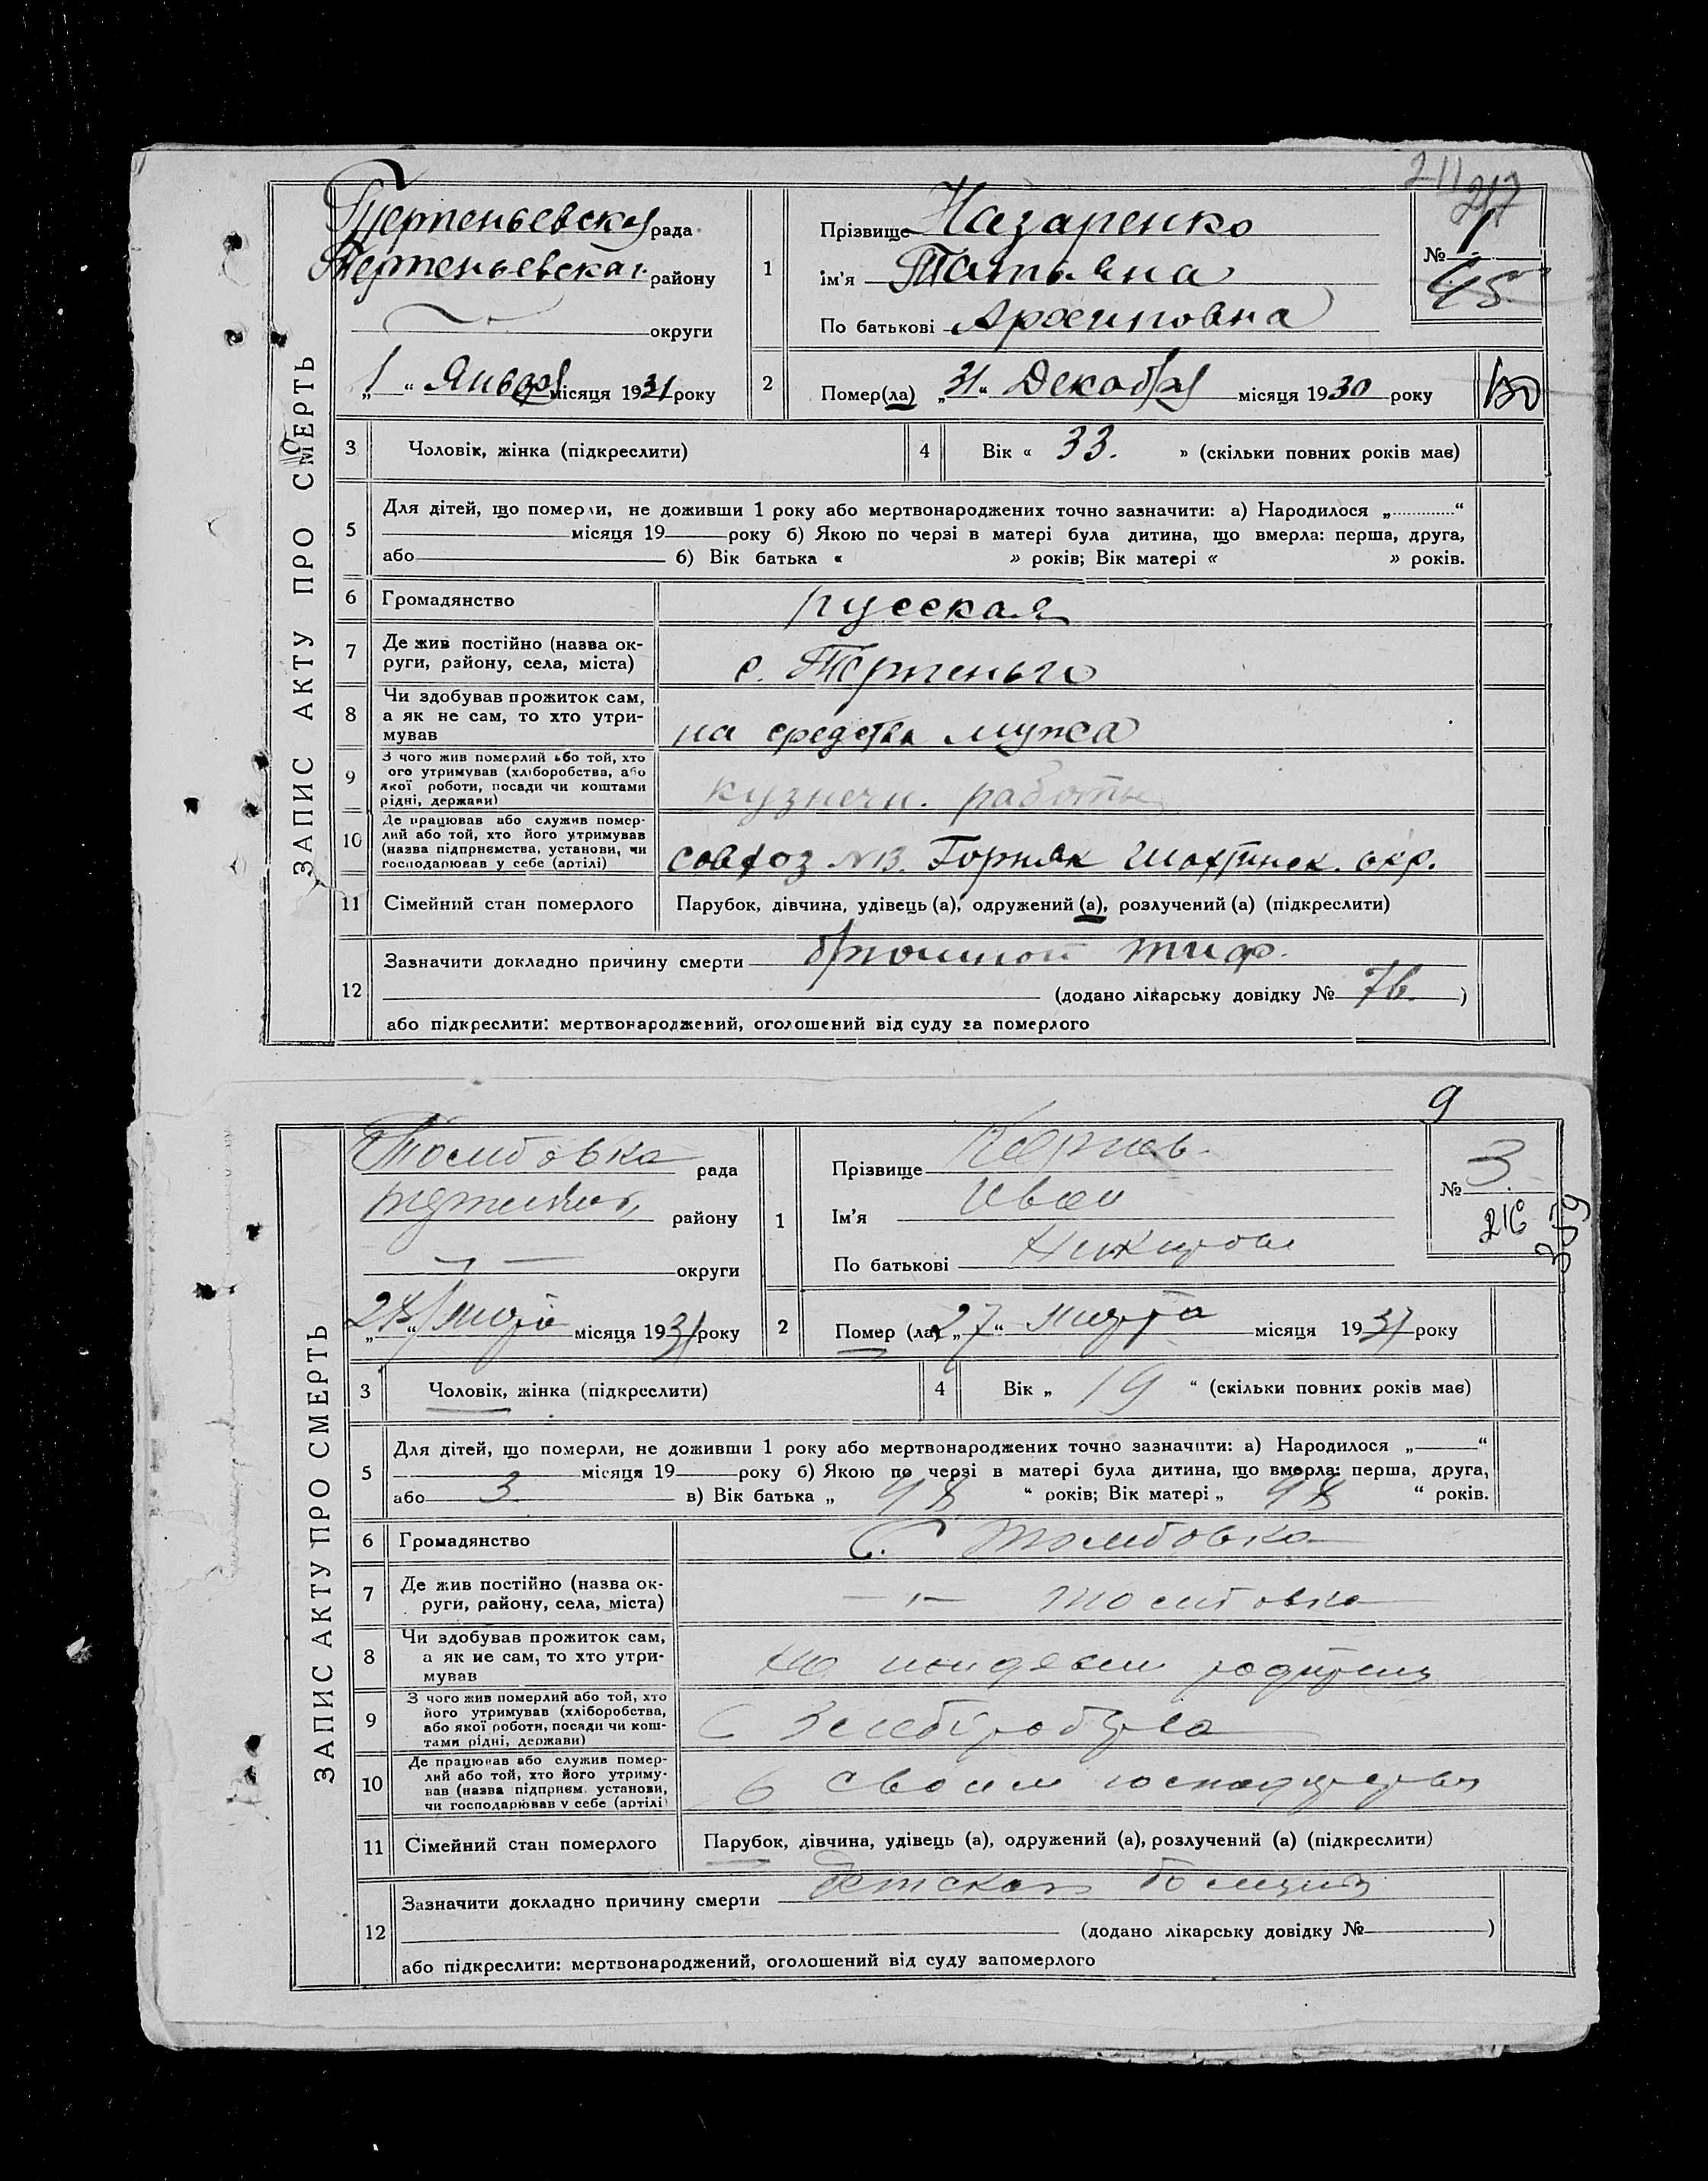 211 217
ЗАПИС АКТУ ПРО СМЕРТЬ
Тертеньевская рада
Тертеньевская району
округи
„1“ Января місяця 1931 року
1
Прізвище Назаренко
ім'я Татьяна
По батькові Архиповна
№ 1
45
2
Помер(ла) „31“ Декабря місяця 1930 року
3 Чоловік, жінка (підкреслити)
4 Вік « 33. » (скільки повних років має)
5
Для дітей, що померли, не доживши 1 року або мертвонароджених точно зазначити: а) Народилося „............“
місяця 19 року б) Якою по черзі в матері була дитина, що вмерла: перша, друга,
або б) Вік батька « » років; Вік матері « » років.
6 Громадянство русская
7 Де жив постійно (назва ок-
руги, району, села, міста) с. Тертенье
8 Чи здобував прожиток сам,
а як не сам, то хто утри-
мував на средства мужа
9 З чого жив померлий або той, хто
ого утримував (хліборобства, або
якої роботи, посади чи коштами
рідні, держави) кузнечн. работы
10 Де працював або служив помер-
лий або той, хто його утримував
(назва підприємства, установи, чи
господарював у себе (артілі) совхоз №13. Горняк Шахтинск. окр.
11 Сімейний стан померлого Парубок, дівчина, удівець (а), одружений (а), розлучений (а) (підкреслити)
12
Зазначити докладно причину смерти брюшной тиф.
(додано лікарську довідку № )
або підкреслити: мертвонароджений, оголошений від суду за померлого
9
ЗАПИС АКТУ ПРО СМЕРТЬ
рада
району
округи
„28“ марта місяця 1931 року
1
Прізвище
Ім'я Иван
По батькові
№ 3
216
309
2
Помер (ла) „27“ марта місяця 1931 року
3 Чоловік, жінка (підкреслити)
4 Вік „ 19 “ (скільки повних років має)
5
Для дітей, що померли, не доживши 1 року або мертвонароджених точно зазначити: а) Народилося „ “
місяця 19 року б) Якою по черзі в матері була дитина, що вмерла: перша, друга,
або 3 в) Вік батька „ 48 “ років; Вік матері „ 48 “ років.
6 Громадянство С.
7 Де жив постійно (назва ок-
руги, району, села, міста)
8 Чи здобував прожиток сам,
а як не сам, то хто утри-
мував на
9 З чого жив померлий або той, хто
його утримував (хліборобства,
або якої роботи, посади чи кош-
тами рідні, держави) С
10 Де працював або служив помер-
лий або той, хто його утриму-
вав (назва підприєм. установи,
чи господарював у себе (артілі) в своем
11 Сімейний стан померлого Парубок, дівчина, удівець (а), одружений (а), розлучений (а) (підкреслити)
12
Зазначити докладно причину смерти Детская
(додано лікарську довідку № )
або підкреслити: мертвонароджений, оголошений від суду запомерлого